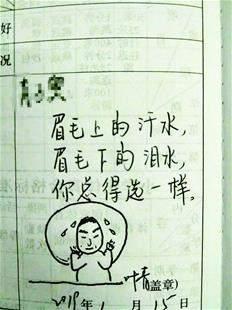 好
况
眉毛上的汗水，
眉毛下的泪水，
你总得选一样。
(盖章)
2019年1月15日